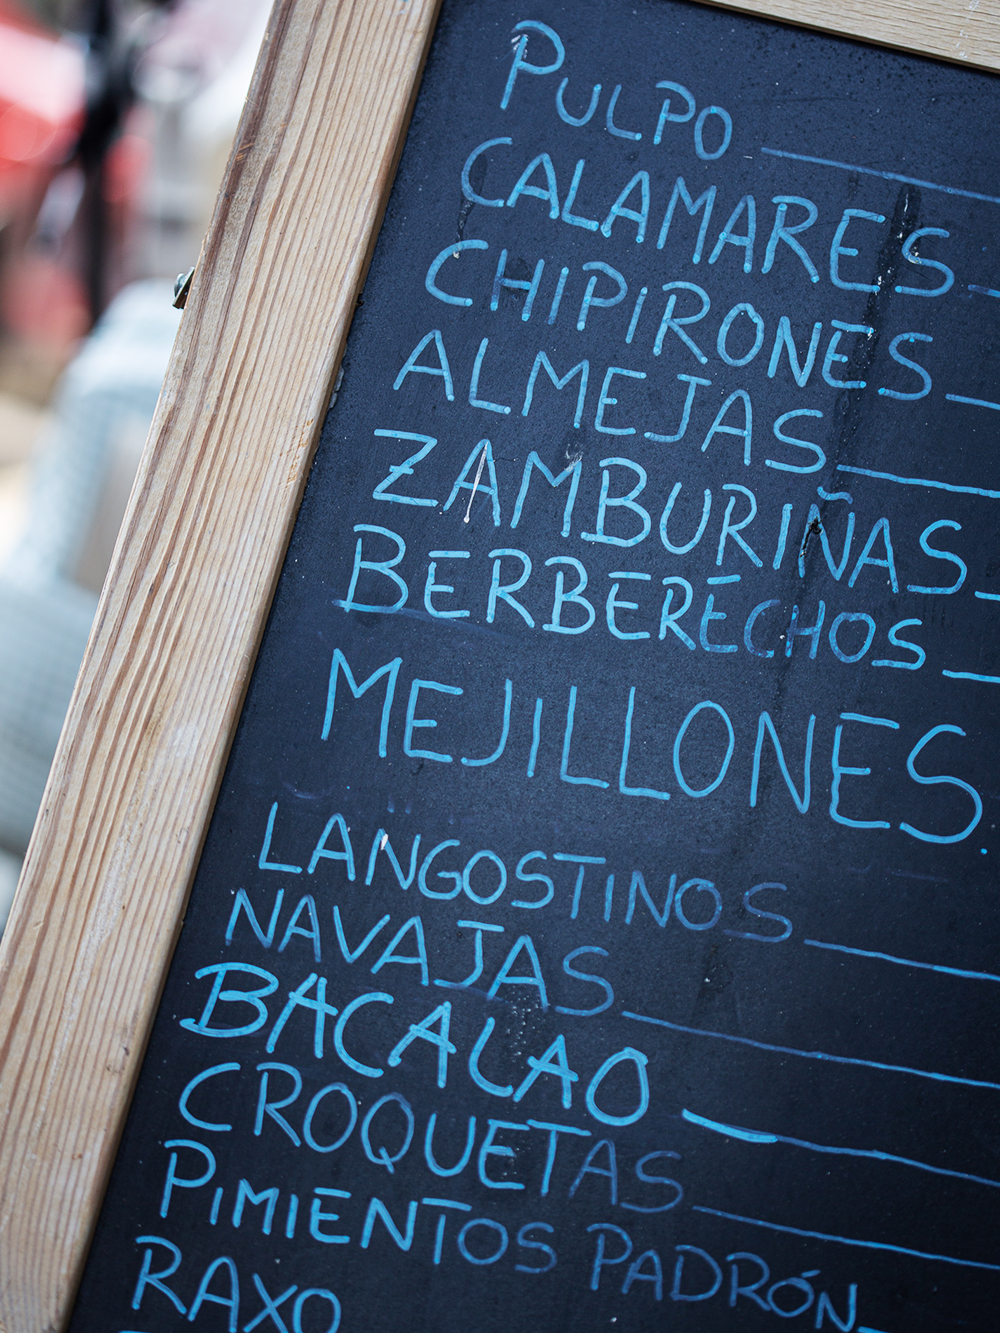 PULPO
CALAMARES
CHIPIRONES
ALMEJAS
ZAMBURIÑAS
BERBERECHOS
MEJILLONES
LANGOSTINOS
NAVAJAS
BACALAO
CROQUETAS
PIMIENTOS PADRÓN
RAXO